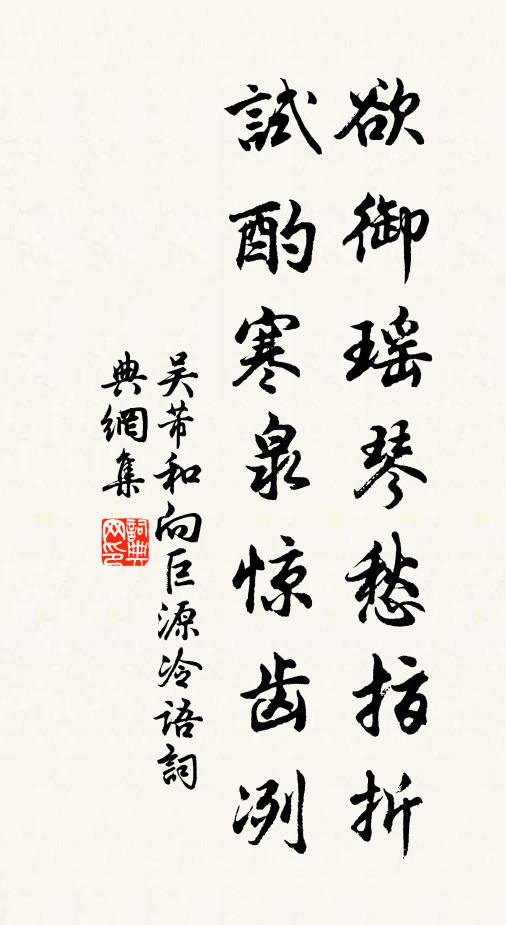 欲御瑶琴愁指折
試酌寒泉惊齿冽
吴芾和向巨源冷語詞
典網集
詞典
网印